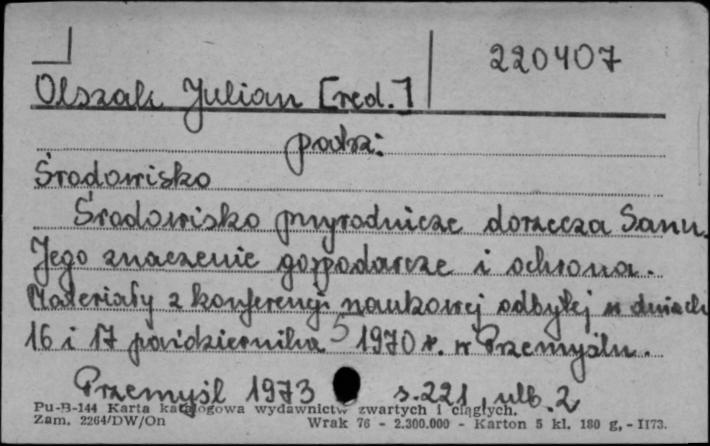 220407
Olszak Julian [red.]
patrz:
Środowisko
Środowisko przyrodnicze dorzecza Sanu.
Jego znaczenie gospodarcze i ochrona.
Materiały z konferencji naukowej odbytej w dniach
16 i 17 października 1970 r. w Przemyślu.
Przemyśl 1973 s. 221, nlb. 2
Pu-B-144 Karta katalogowa wydawnictw zwartych i ciągłych.
Zam. 2264/DW/On Wrak 76 - 2.300.000 - Karton 5 kl. 180 g, - II73.